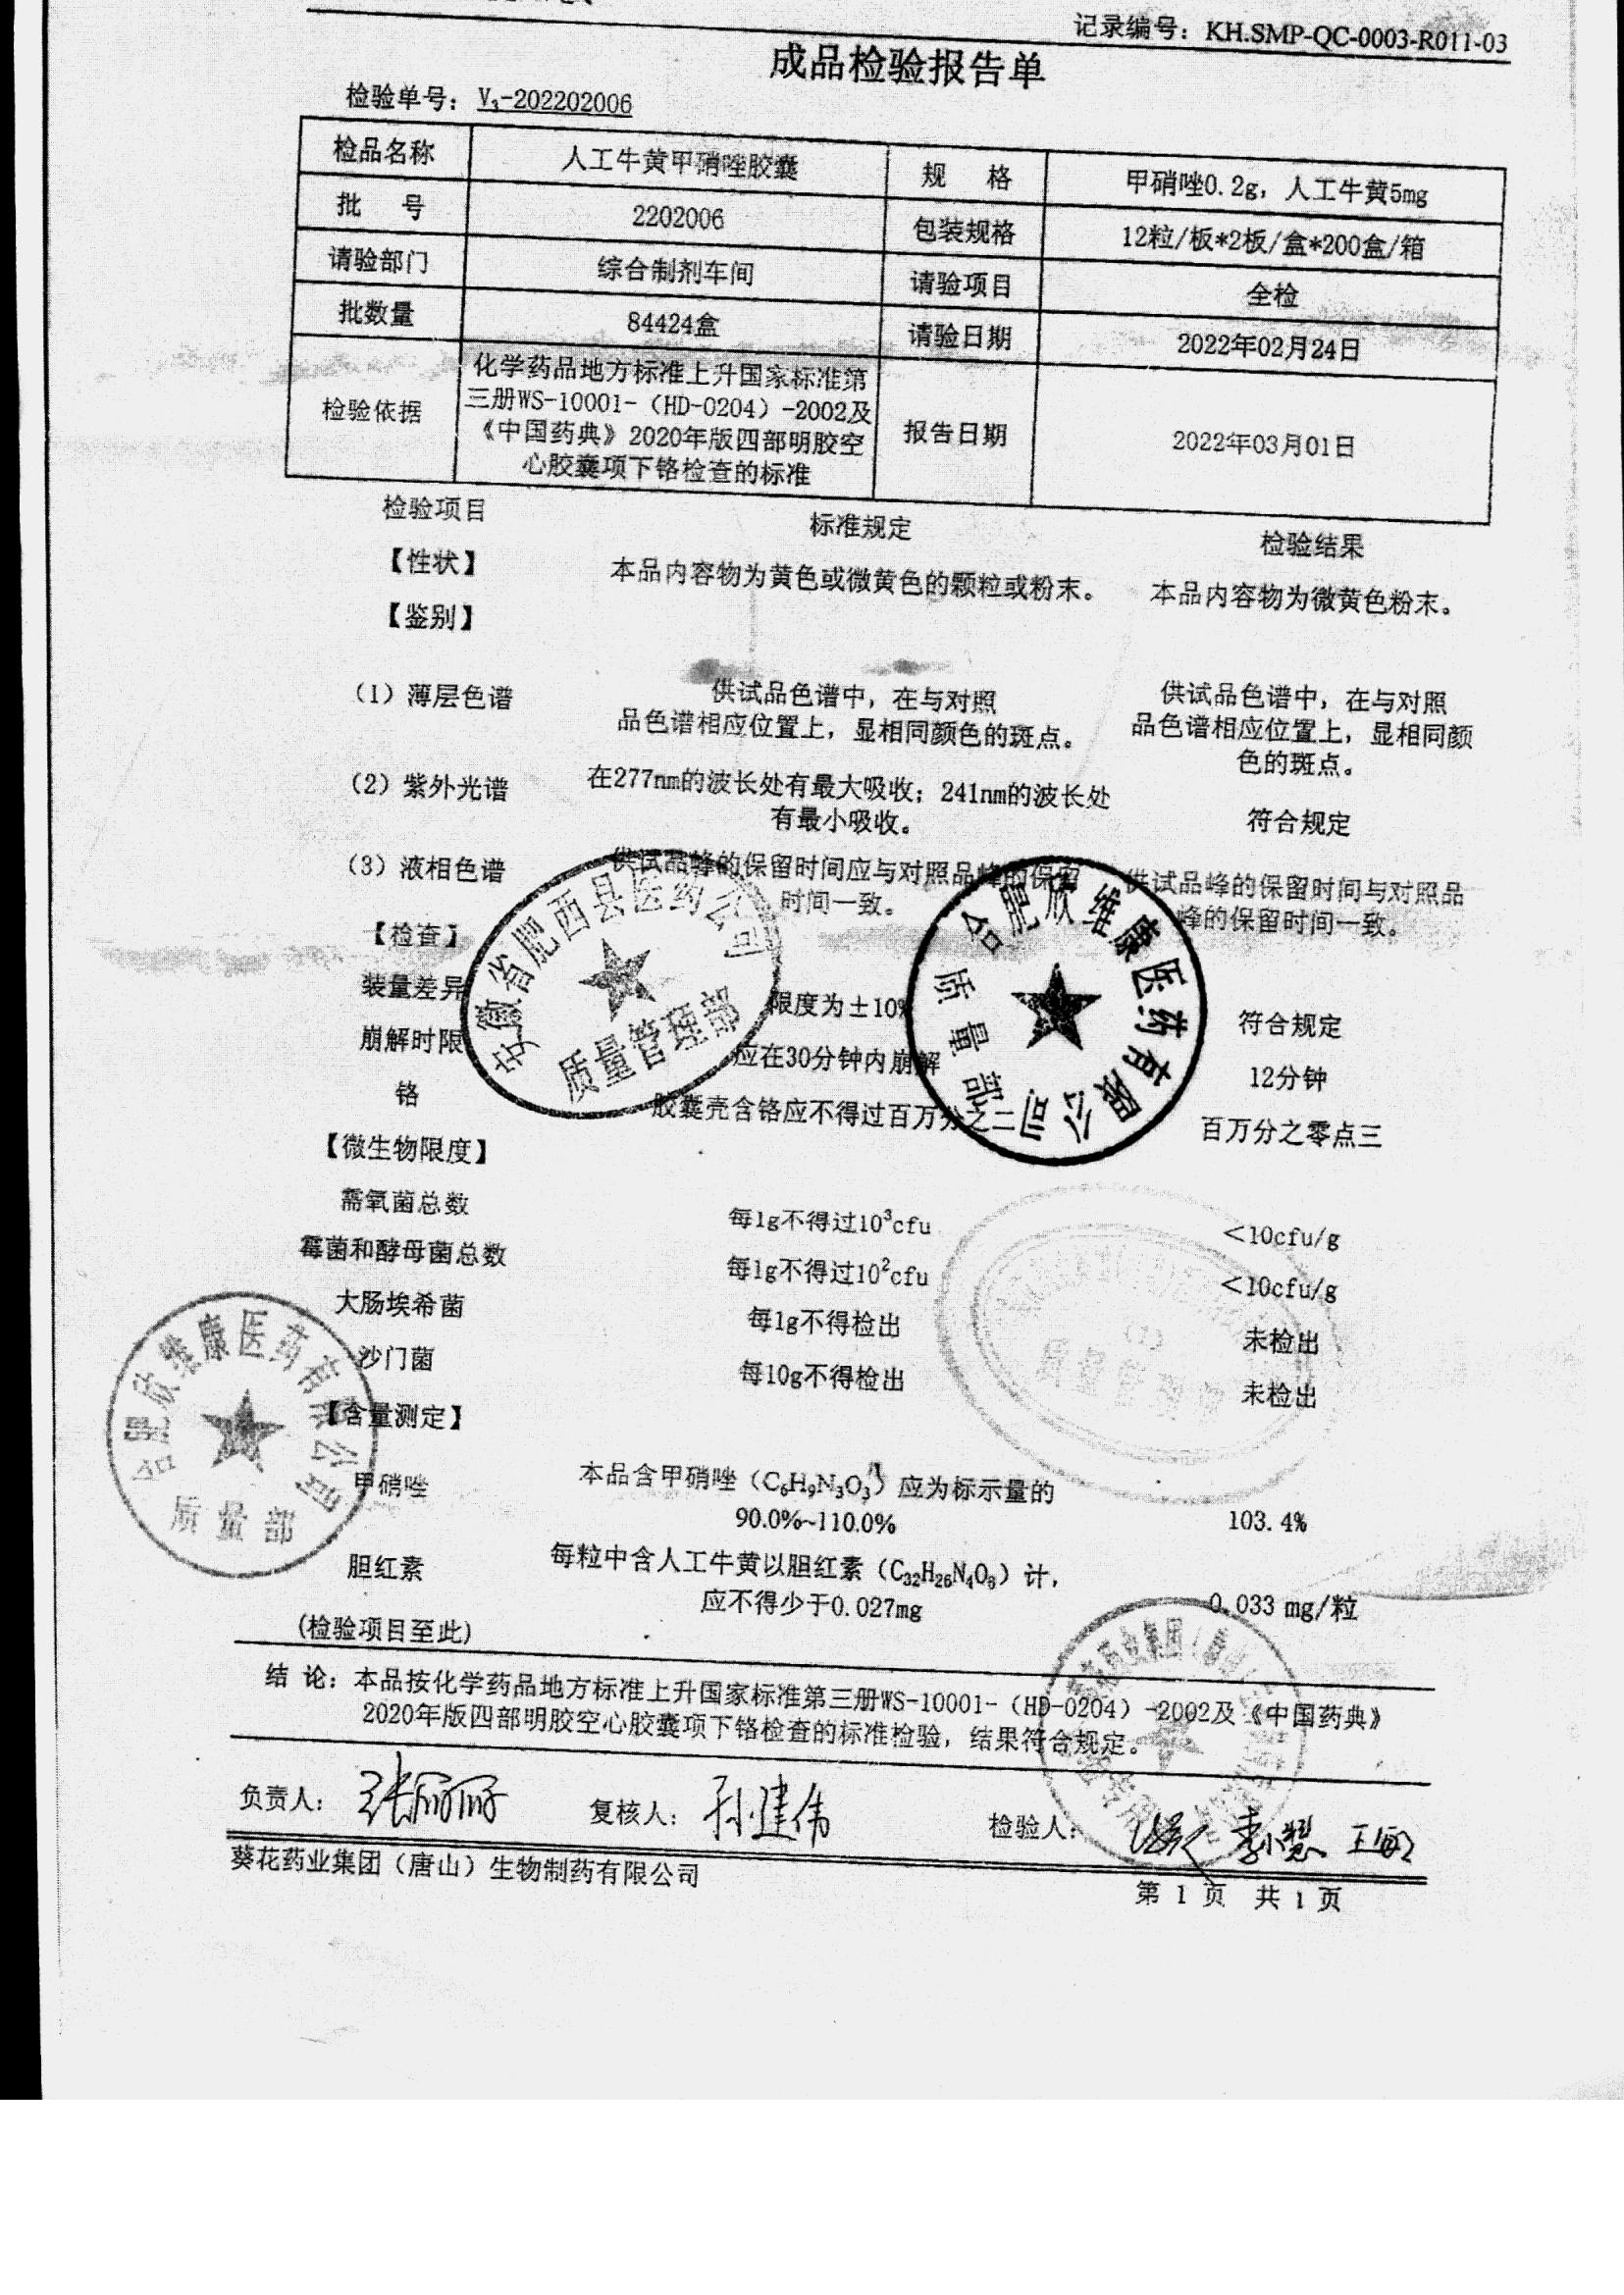 记录编号：KH.SMP-QC-0003-R011-03
成品检验报告单
检验单号：V₃-202202006
检品名称 人工牛黄甲硝唑胶囊 规 格 甲硝唑0.2g，人工牛黄5mg
批 号 2202006 包装规格 12粒/板*2板/盒*200盒/箱
请验部门 综合制剂车间 请验项目 全检
批数量 84424盒 请验日期 2022年02月24日
检验依据 化学药品地方标准上升国家标准第
三册WS-10001-（HD-0204）-2002及
《中国药典》2020年版四部明胶空
心胶囊项下铬检查的标准
报告日期 2022年03月01日
检验项目 标准规定 检验结果
【性状】 本品内容物为黄色或微黄色的颗粒或粉末。 本品内容物为微黄色粉末。
【鉴别】
（1）薄层色谱 供试品色谱中，在与对照 供试品色谱中，在与对照
品色谱相应位置上，显相同颜色的斑点。 品色谱相应位置上，显相同颜
色的斑点。
（2）紫外光谱 在277nm的波长处有最大吸收；241nm的波长处
有最小吸收。 符合规定
（3）液相色谱 供试品峰的保留时间应与对照品峰的保留 供试品峰的保留时间与对照品
时间一致。 峰的保留时间一致。
【检查】
装量差异 限度为±10% 符合规定
崩解时限 应在30分钟内崩解 12分钟
铬 胶囊壳含铬应不得过百万分之二 百万分之零点三
【微生物限度】
需氧菌总数 每1g不得过10³cfu ＜10cfu/g
霉菌和酵母菌总数 每1g不得过10²cfu ＜10cfu/g
大肠埃希菌 每1g不得检出 未检出
沙门菌 每10g不得检出 未检出
【含量测定】
甲硝唑 本品含甲硝唑（C₆H₉N₃O₃）应为标示量的
90.0%~110.0% 103.4%
胆红素 每粒中含人工牛黄以胆红素（C₃₂H₂₆N₄O₆）计，
应不得少于0.027mg 0.033 mg/粒
(检验项目至此)
结 论：本品按化学药品地方标准上升国家标准第三册WS-10001-（HD-0204）-2002及《中国药典》
2020年版四部明胶空心胶囊项下铬检查的标准检验，结果符合规定。
负责人：张丽丽 复核人：孙建伟 检验人： 李小慧 王敏
葵花药业集团（唐山）生物制药有限公司
第 1 页 共 1 页
安徽省肥西县医药公司
质量管理部
合肥欣维康医药有限公司
质量部
合肥欣维康医药有限公司
质量部
(1)
质量管理部